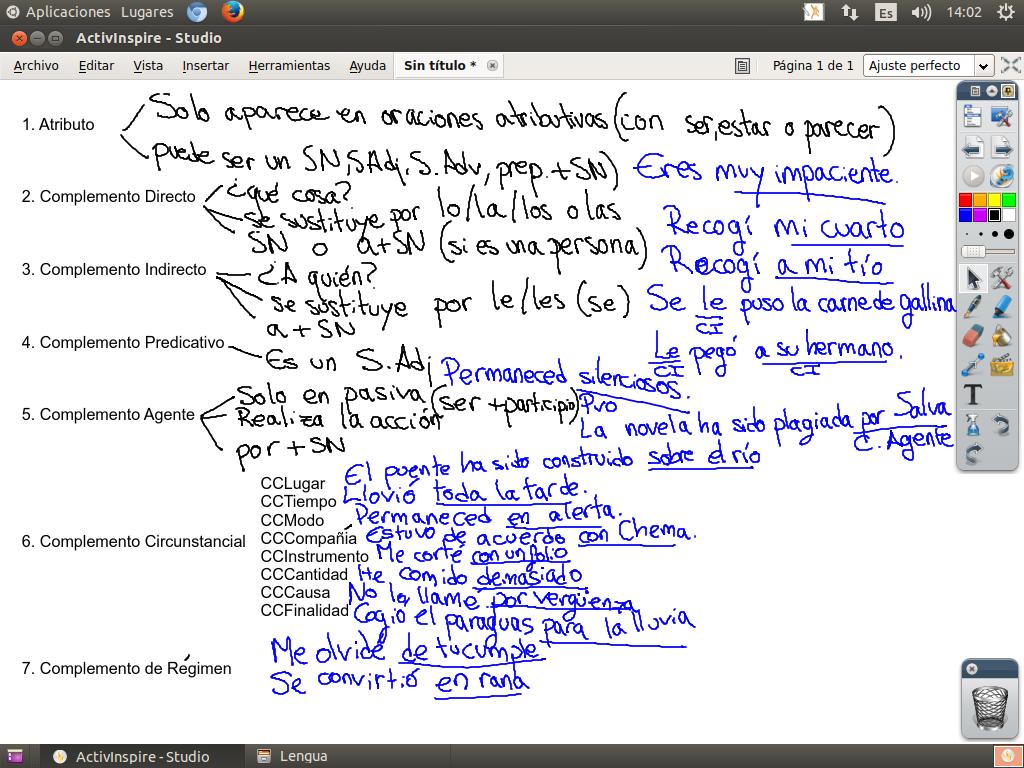 Aplicaciones Lugares Es 14:02
ActivInspire - Studio
Archivo Editar Vista Insertar Herramientas Ayuda Sin título * Página 1 de 1 Ajuste perfecto
Solo aparece en oraciones atributivas (con ser, estar o parecer)
1. Atributo
puede ser un SN, SAdj, S. Adv, prep. + SN) Eres muy impaciente.
2. Complemento Directo ¿qué cosa?
se sustituye por lo/la/los o las
Recogí mi cuarto
SN o a+SN (si es una persona)
3. Complemento Indirecto ¿A quién? Recogí a mi tío
se sustituye por le/les (se) Se le puso la carne de gallina
CI
a + SN
4. Complemento Predicativo Es un S. Adj Le pegó a su hermano.
CI CI
Permaneced silenciosos.
Pvo
5. Complemento Agente Solo en pasiva (ser + participio)
Realiza la acción La novela ha sido plagiada por Salva
C. Agente
por + SN
El puente ha sido construido sobre el río
CCLugar
CCTiempo Llovió toda la tarde.
CCModo Permaneced en alerta.
6. Complemento Circunstancial CCCompañía Estuvo de acuerdo con Chema.
CCInstrumento Me corté con un folio
CCCantidad He comido demasiado
CCCausa No la llamé por vergüenza
CCFinalidad Cogió el paraguas para la lluvia
Me olvidé de tu cumple
7. Complemento de Régimen
Se convirtió en rana
T
ActivInspire - Studio Lengua